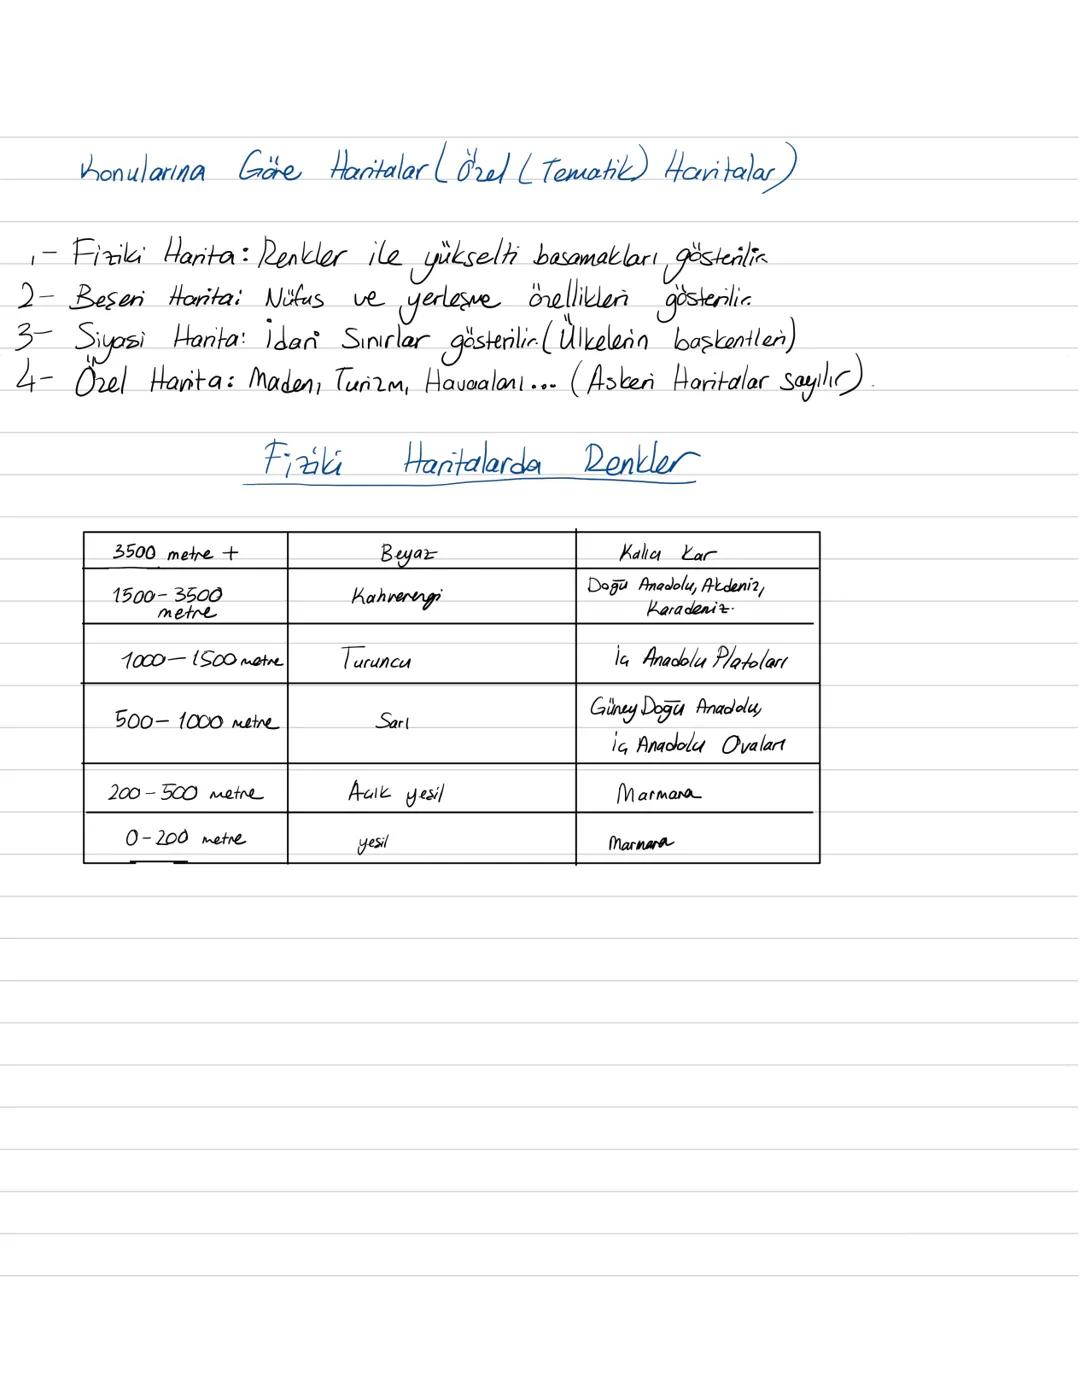 Konularına Göre Haritalar (Özel (Tematik) Haritalar)
1- Fiziki Harita: Renkler ile yükselti basamakları gösterilir
2- Beşeri Harita: Nüfus ve yerleşme özellikleri gösterilir.
3- Siyasi Harita: İdari Sınırlar gösterilir. (Ülkelerin başkentleri)
4- Özel Harita: Maden, Turizm, Havaalanı... (Askeri Haritalar sayılır).
Fiziki Haritalarda Renkler
3500 metre + Beyaz Kalıcı Kar
1500-3500 metre Kahverengi Doğu Anadolu, Akdeniz, Karadeniz.
1000-1500 metre Turuncu İç Anadolu Platoları
500-1000 metre Sarı Güney Doğu Anadolu, iç Anadolu Ovaları
200-500 metre Açık yeşil Marmara
0-200 metre yeşil Marmara